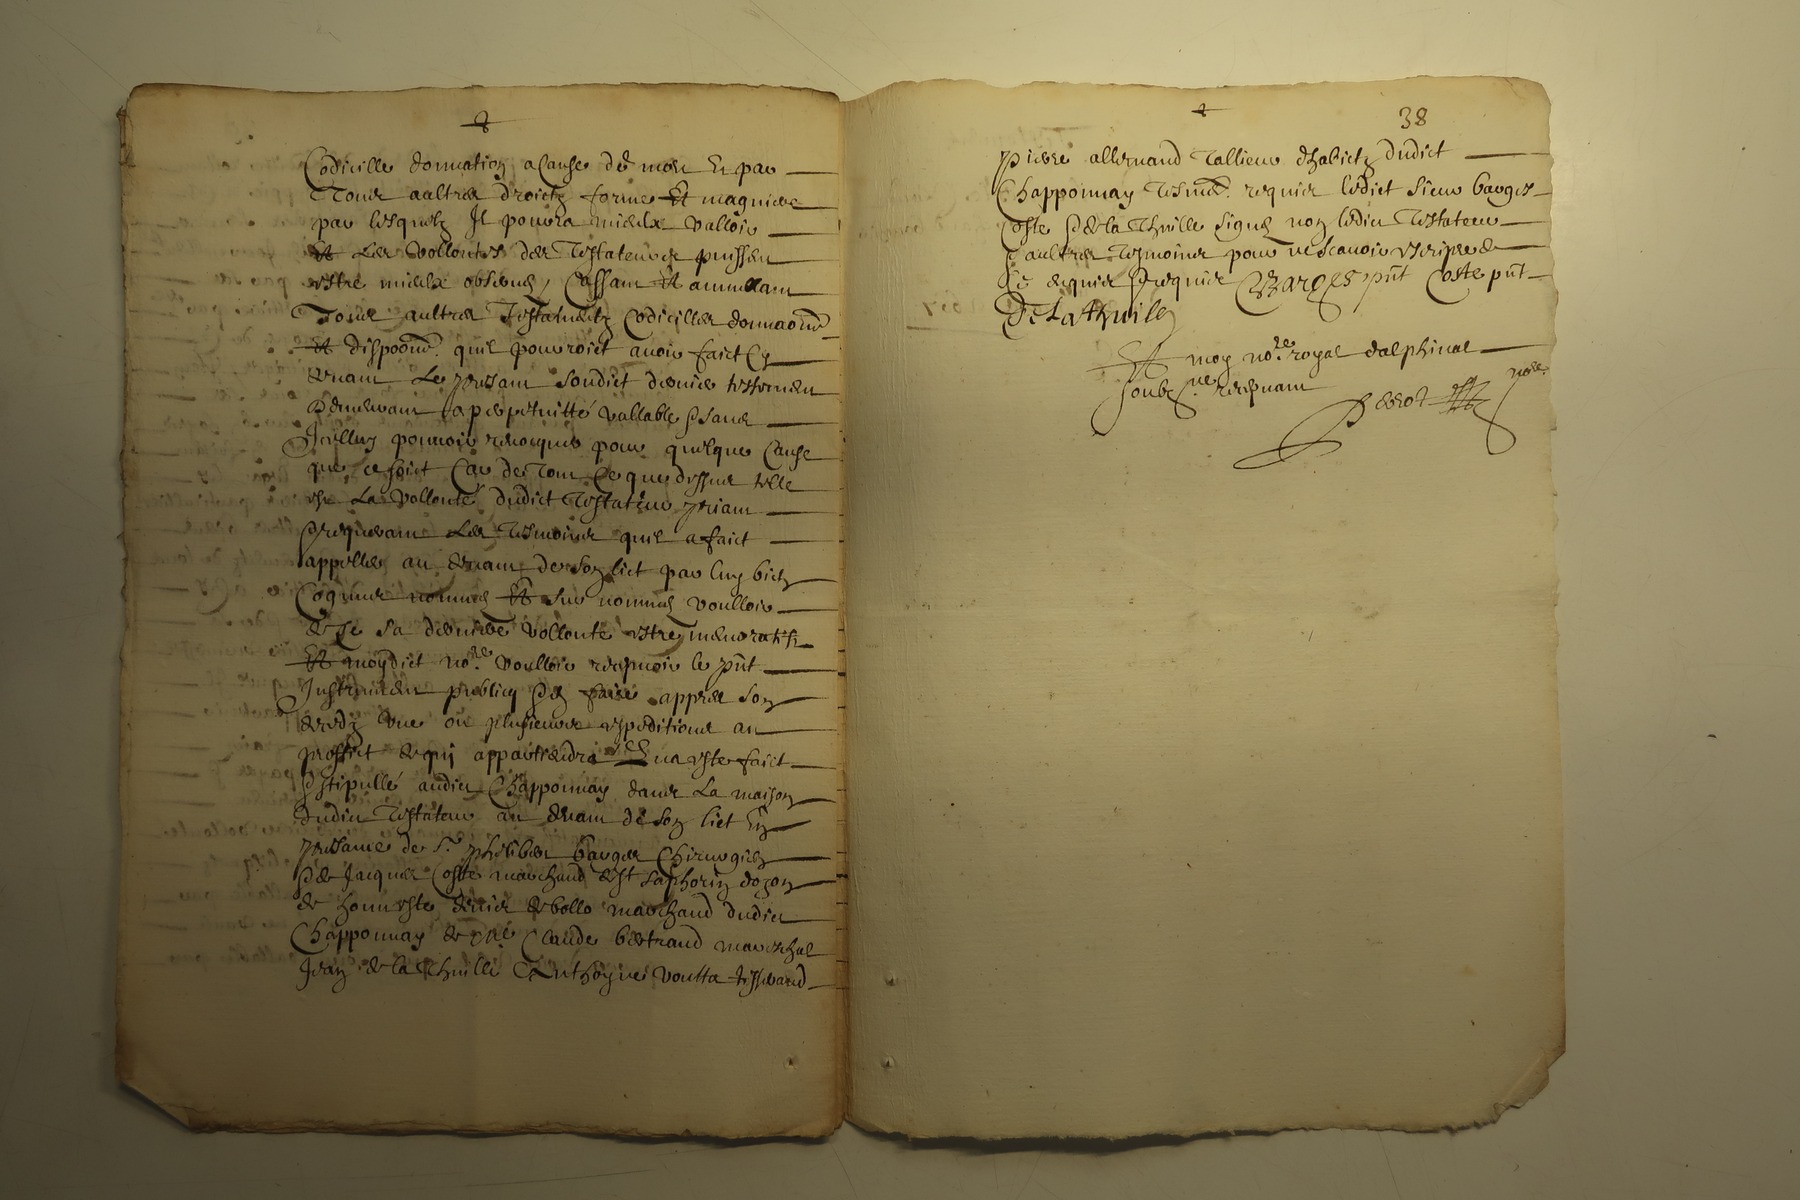 Codicille donnation a Cause de mort Et par
Tous aultres droictz forme Et maniere
par lesquelz Il pourra mieulx valloir
Et Les vollontes des Testateurs puissent
estre mieulx observes, Cassant Et annullant
Tous aultres Testamentz Codicilles donnaons
Et dispoons quil pourroict avoir faict Cy
devant Le presant sondict dernier testement
demeurant a perpetuitté vallable sans
Icelluy pouvoir revocquer pour quelque Cause
que ce soict Car de Tout Ce que dessus telle
est La vollonté dudict Testateur priant
requerant Les Tesmoins quil a faict
appeller au devant de son lict par luy bien
Cogneus nommes Et sur nommes voulloir
de Ce sa derniere vollonté estre memoratifz
Et moydict nore voulloir recepvoir le pnt
Instrument publicq & En faire appres son
deces une ou plusieurs expeditions au
proffict de quy appartiendra Et na este faict
& stipullé audict Chapponnay dans La maison
dudict Testateur au devant de son lict En
presance de Sr. philibert barges Chirurgien
& de Jacques Coste marchand de St Saphorin dozon
de honneste denis debollo marchand dudict
Chapponnay de me Claude bertrand mareschal
Jean de la Thuille Anthoyne voutta tisserand
38
pierre allemand Tallieur dhabictz dudict
Chapponnay Tesmes. requis ledict Sieur barges
Coste & de la Thuille Signes non ledict Testateur
& aultres Tesmoins pour ne scavoir escripre de
Ce enquis & requis Barges pnt Coste pnt
De La Thuille
Et moy nore. royal dalphinal
soubzne. recepvant
Perrot nore.